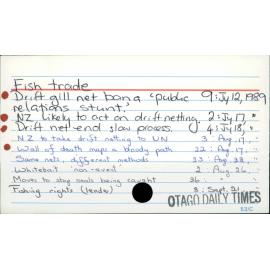 Fish trade
Drift gill net ban a 'public 9: Jy 12, 1989
relations stunt.'
NZ likely to act on drift netting. 2: Jy 17, "
Drift net-end slow process. 4: Jy 18, "
NZ to take drift netting to UN 3: Aug. 17, "
Wall of death maps a bloody path 22: Aug. 17, "
Same nets, different methods 23: Aug. 23, "
Whitebait non-event 2: Aug 26, "
Moves to stop seals being caught 36
Fishing rights (tender) 3: Sept. 21, "
OTAGO DAILY TIMES